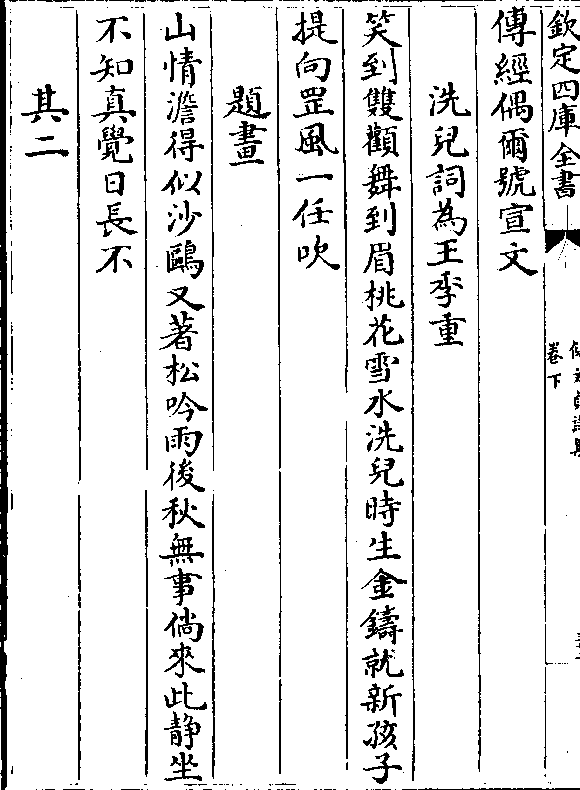 欽定四庫全書
卷下
傳經偶爾號宣文
洗兒詞為王季重
笑到雙顴舞到眉桃花雪水洗兒時生金鑄就新孩子
提向罡風一任吹
題畫
山情澹得似沙鷗又著松吟雨後秋無事倘來此静坐
不知真覺日長不
其二